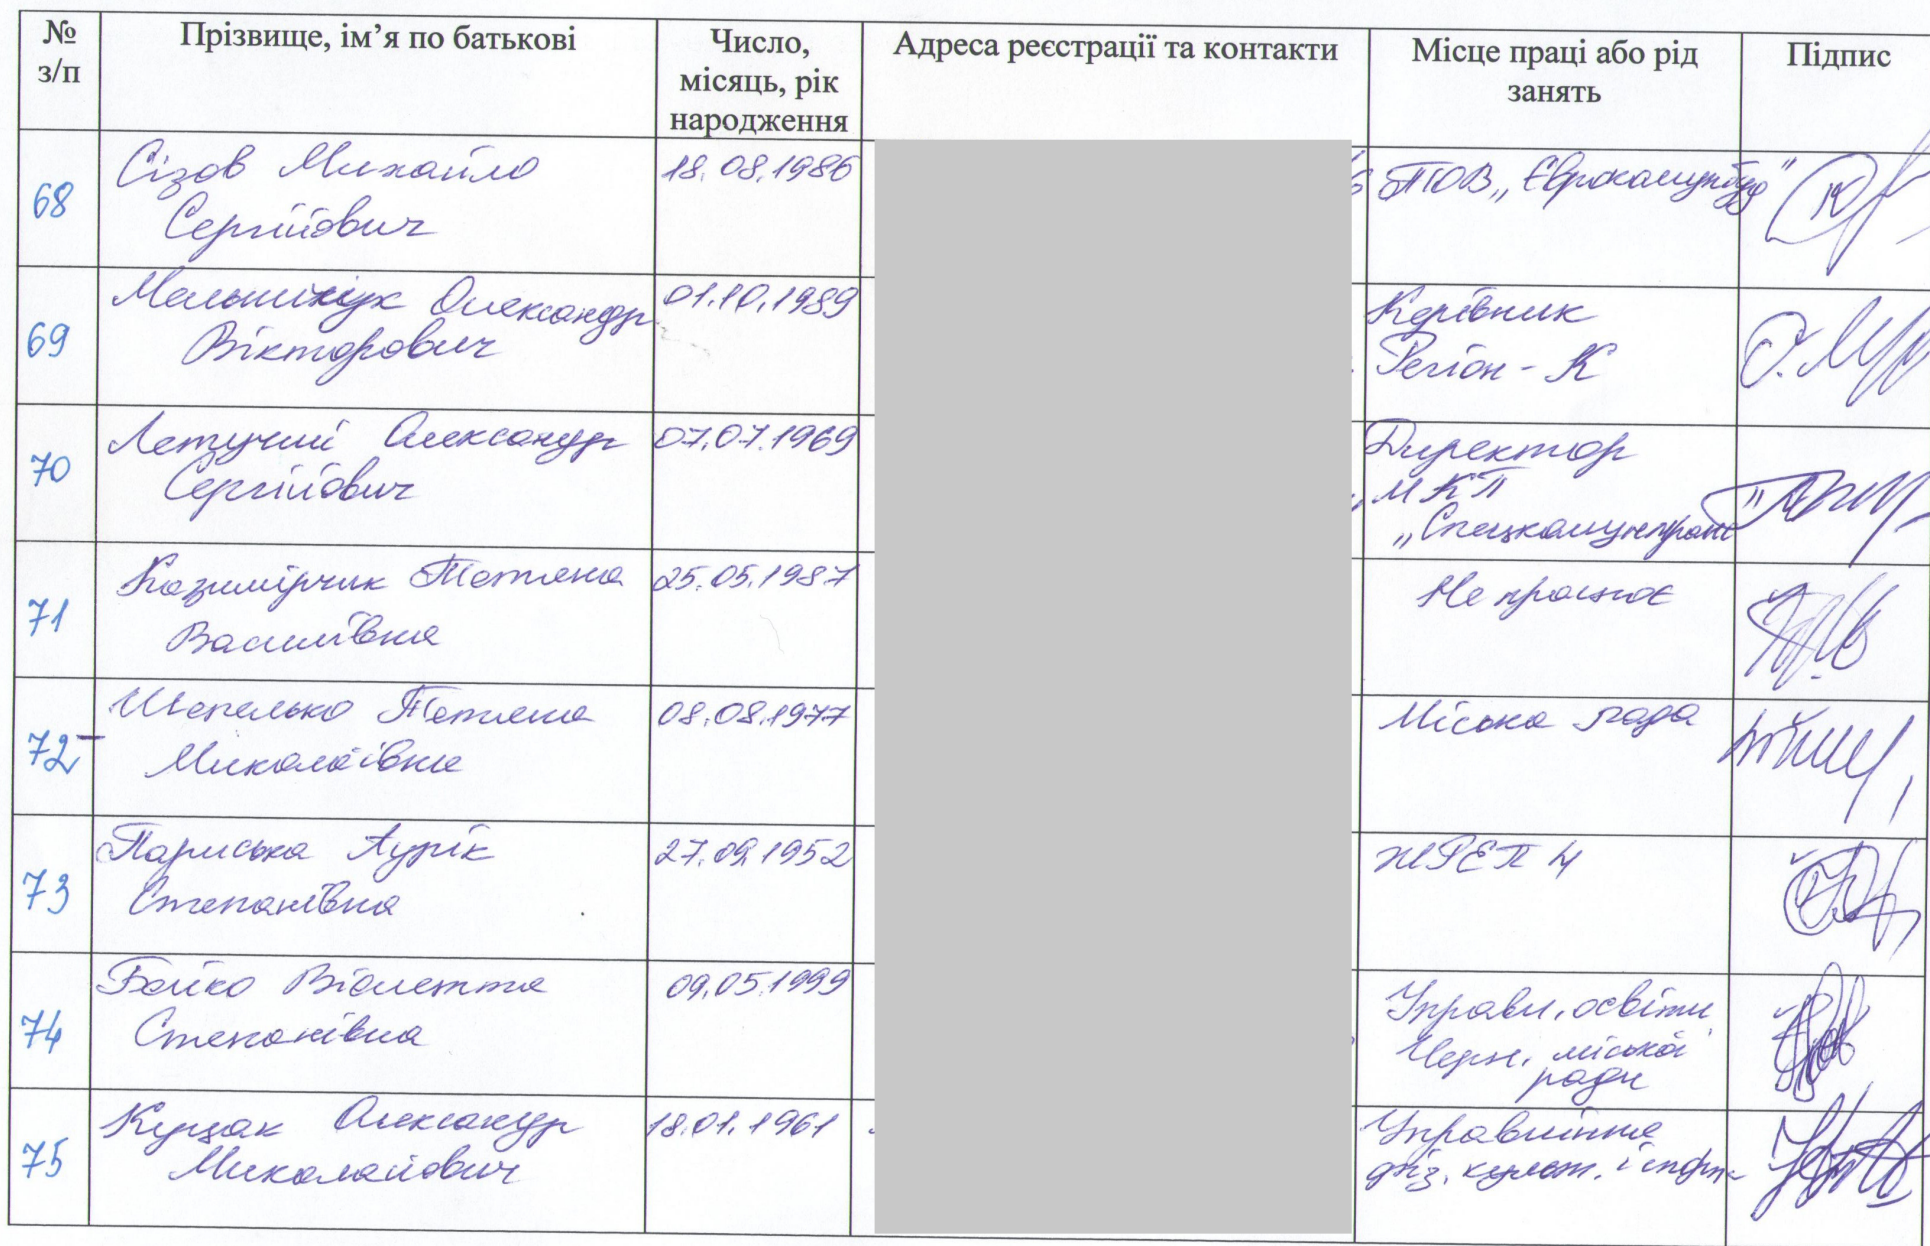 № з/п
Прізвище, ім’я по батькові
Число, місяць, рік народження
Адреса реєстрації та контакти
Місце праці або рід занять
Підпис
68
Сізов Михайло
Сергійович
18.08.1986
ТОВ „Єврокомунбуд”
69
Мельничук Олександр
Вікторович
01.10.1989
Керівник
Регіон-К
70
Летучий Олександр
Сергійович
07.07.1969
Директор
МКП
„Спецкомунтранс”
71
Казимірчик Тетяна
Василівна
25.05.1987
Не працює
72
Шепелько Тетяна
Миколаївна
08.08.1977
Міська рада
73
Париська Ауріка
Степанівна
27.09.1952
ЖРЕП 4
74
Бойко Віолетта
Степанівна
09.05.1999
Управл. освіти
Черн. міської
ради
75
Куцак Олександр
Миколайович
18.01.1961
Управління
фіз. культ. і спорт